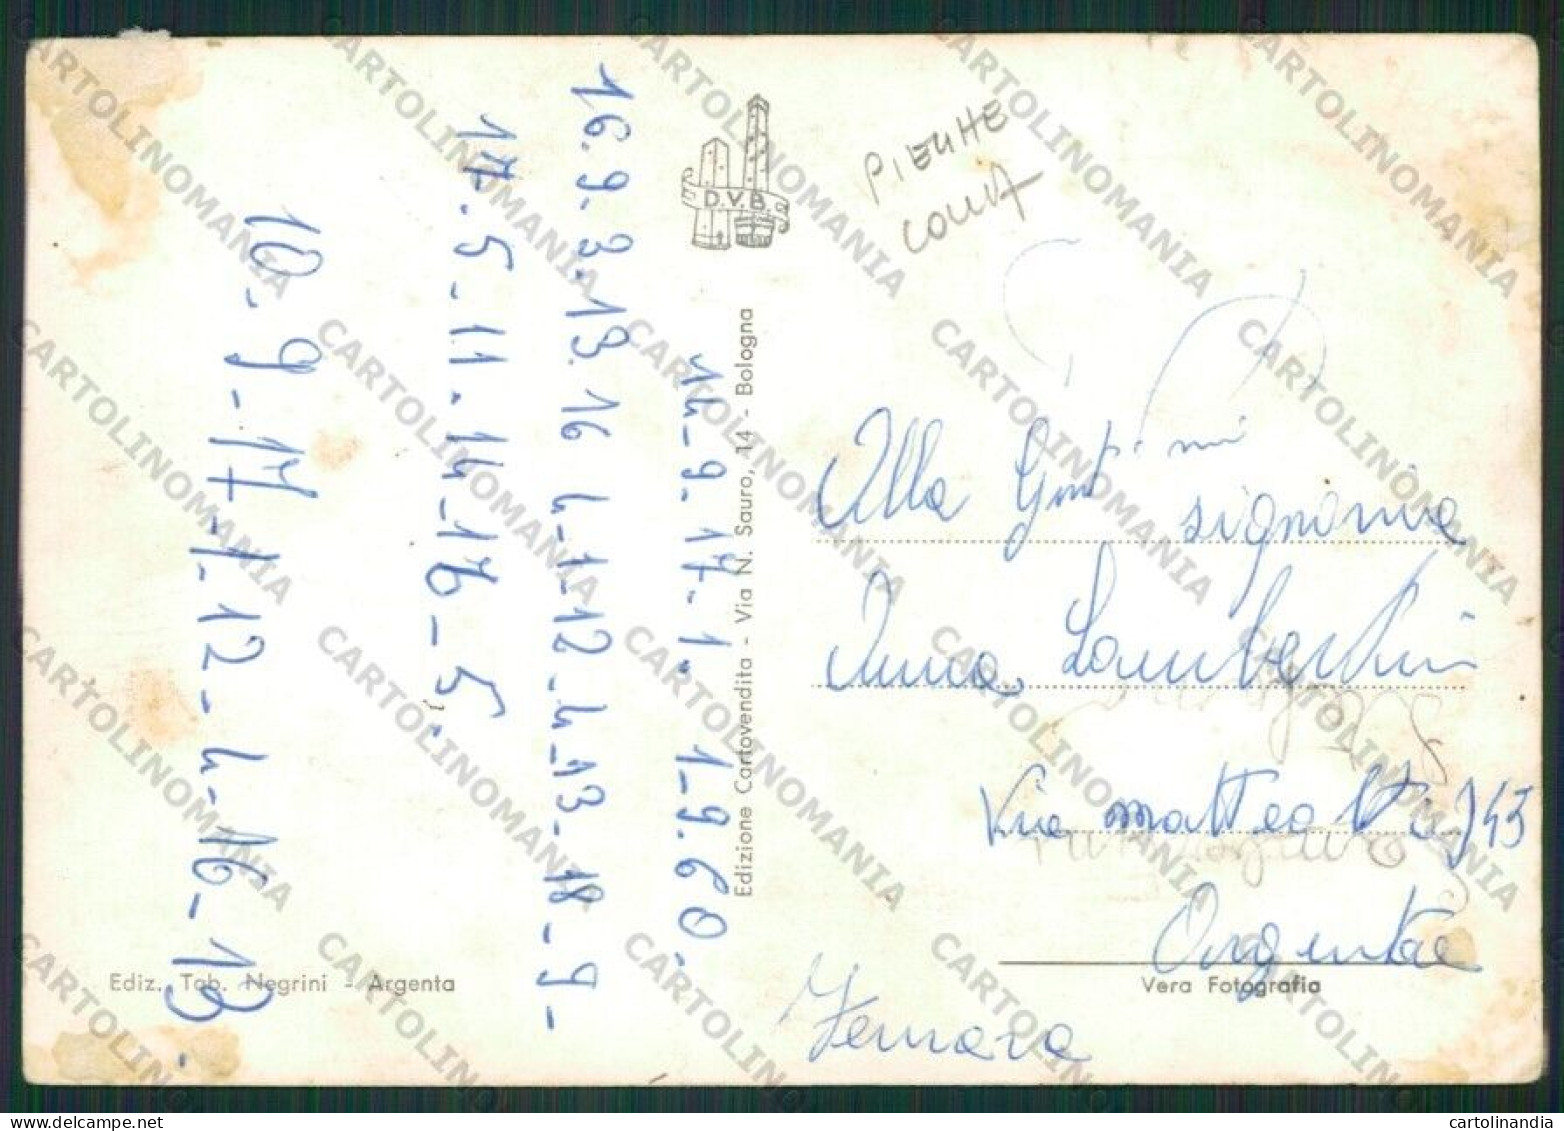 14-9. 17. 1. 1-9.60.
16. 9. 3. 13. 16 4-1-12-4-13-18-9-
17. 5. 11. 14-16-5.
10. 9-17-1. 12-4-16-13.
D.V.B.
Edizione Cartovendita - Via N. Sauro, 14 - Bologna
Ediz. Tab. Negrini - Argenta
Alla Gent.mi
signorina
Anna Lambertini
Via Matteotti 145
Argenta
Vera Fotografia
Ferrara
cartolinandia
CARTOLINOMANIA